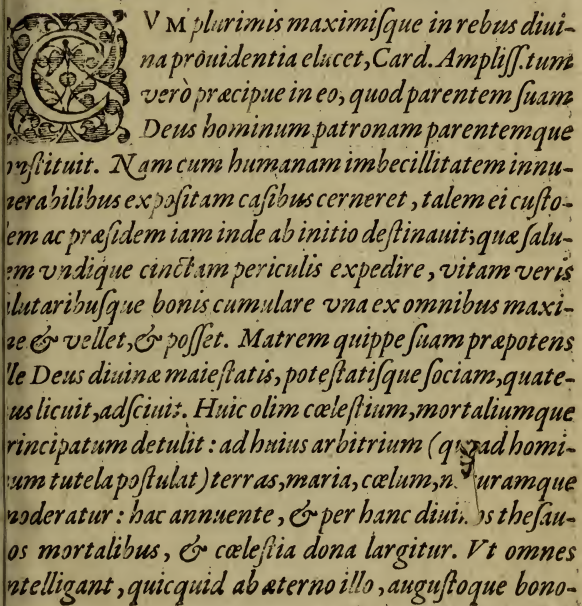 CVM plurimis maximisque in rebus diui-
na prouidentia elucet, Card. Ampliss. tum
verò præcipue in eo, quod parentem suam
Deus hominum patronam parentemque
nstituit. Nam cum humanam imbecillitatem innu-
nerabilibus expositam casibus cerneret, talem ei custo-
em ac præsidem iam inde ab initio destinauit; quæ salu-
em vndique cinctam periculis expedire, vitam veris
lutaribusque bonis cumulare vna ex omnibus maxi-
ne & vellet, & posset. Matrem quippe suam præpotens
lle Deus diuinæ maiestatis, potestatisque sociam, quate-
us licuit, adsciuit. Huic olim cœlestium, mortaliumque
rincipatum detulit: ad huius arbitrium (quoad homi-
um tutela postulat) terras, maria, cœlum, n uramque
moderatur: hac annuente, & per hanc diui os thesau-
os mortalibus, & cœlestia dona largitur. Vt omnes
ntelligant, quicquid ab æterno illo, augustoque bono-